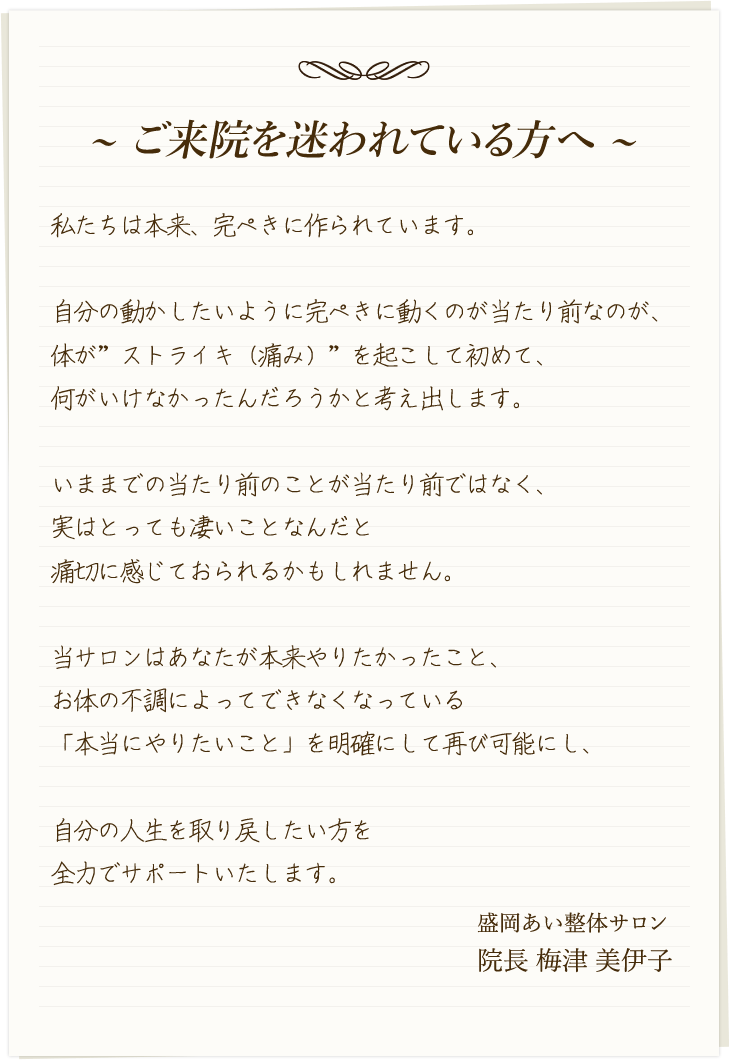 ~ ご来院を迷われている方へ ~
私たちは本来、完ぺきに作られています。
自分の動かしたいように完ぺきに動くのが当たり前なのが、
体が”ストライキ（痛み）”を起こして初めて、
何がいけなかったんだろうかと考え出します。
いままでの当たり前のことが当たり前ではなく、
実はとっても凄いことなんだと
痛切に感じておられるかもしれません。
当サロンはあなたが本来やりたかったこと、
お体の不調によってできなくなっている
「本当にやりたいこと」を明確にして再び可能にし、
自分の人生を取り戻したい方を
全力でサポートいたします。
盛岡あい整体サロン
院長 梅津 美伊子